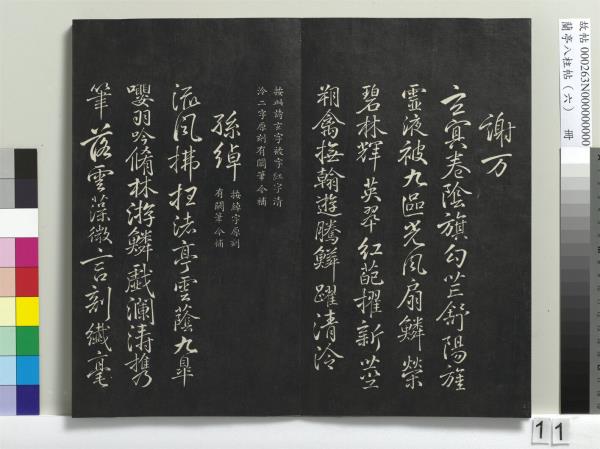 故帖 000263N000000000
蘭亭八柱帖（六） 冊
謝万
玄冥卷陰旗勾芒舒陽旌
靈液被九區光風扇鱗榮
碧林輝英翠紅葩擢新莖
翔禽撫翰遊騰鱗躍清泠
按此詩玄字被字紅字清
泠二字原刻有闕筆今補
孫綽
按綽字原刻
有闕筆今補
流風拂枉渚亭雲蔭九皋
嚶羽吟脩林游鱗戲瀾濤携
筆落雲藻微言剖纖毫
11